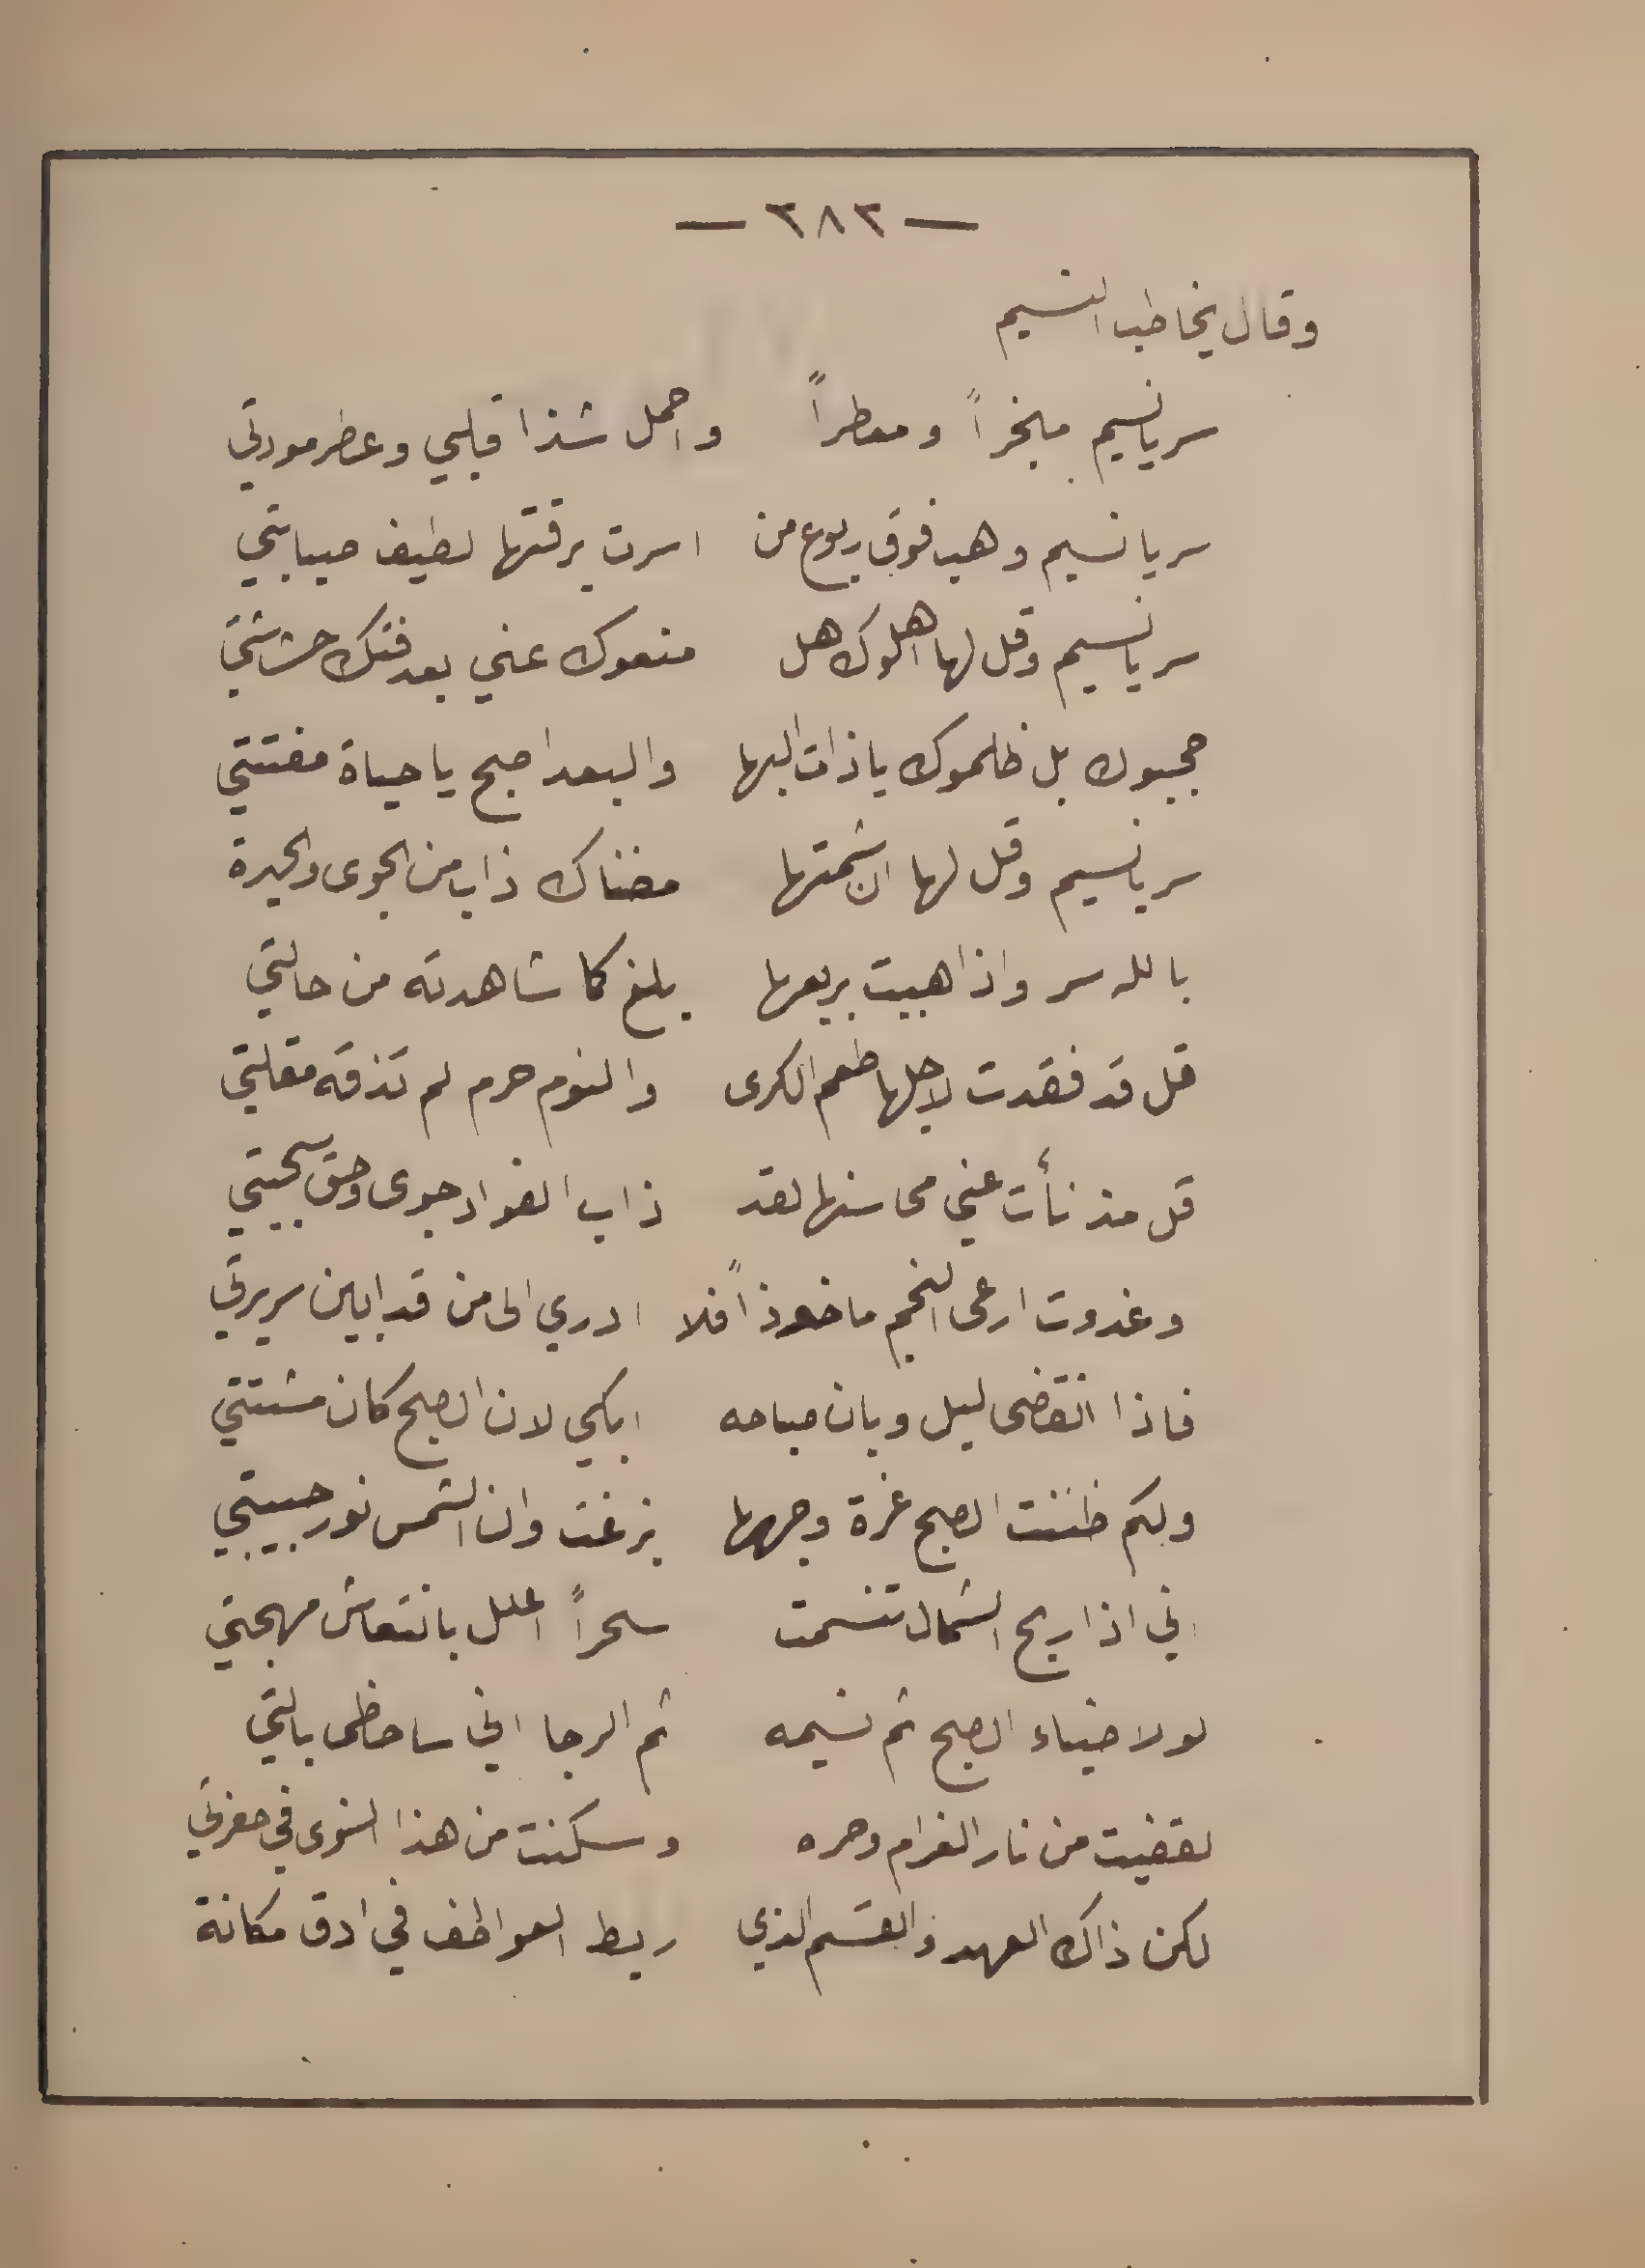 — ٣٨٢ —
وقال يخاطب النسيم
سر يا نسيم مبخراً ومعطراً واحمل شذا قبلي وعطر مودتي
سر يا نسيم وهب فوق ربوع من اسرت برقتها لطيف صبابتي
سر يا نسيم وقل لها اهلوك هل منعوك عني بعد فتك حشاشتي
حجبوك بل ظلموك يا ذات البها والبعد اصبح يا حياة مفتتي
سر يا نسيم وقل لها ان شمتها مضناك ذاب من الجوى والحيرة
بالله سر واذا هببت بربعها بلغ كما شاهدته من حالتي
قل قد فقدت لاجلها طعم الكرى والنوم حرم لم تذقه مقلتي
قل منذ نأت عني محاسنها لقد ذاب الفواد جوى وحق محبتي
وغدوت ارعى النجم ماخوذاً فلا ادري الى من قد ابين سريرتي
فاذا انقضى ليل وبان صباحه ابكي لان الصبح كان مشتتي
ولكم ظننت الصبح غرة وجهها بزغت وان الشمس نور حبيبتي
اني اذا ريح الشمال تنسمت سحراً اعلل بانتعاش مهجتي
لولا ضياء الصبح ثم نسيمه ثم الرجا اني ساحظى بالتي
لقضيت من نار الغرام وحره وسكنت من هذا النوى في حفرتي
لكن ذاك العهد والقسم الذي ربط العواطف في ادق مكانة